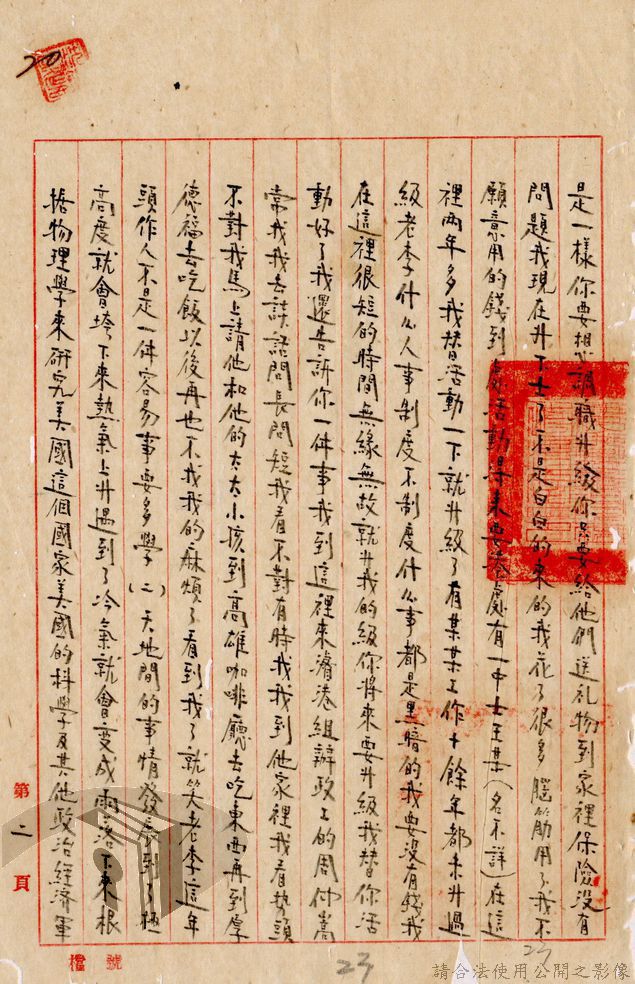 是一樣你要想調職升級你只要給他們送礼物到家裡保險沒有
問題我現在升下士了不是白白的來的我花了很多腦筋用了我不
願意用的錢到處活動得來要
處有一中士王某(名不詳)在這
裡兩年多我替活動一下就升級了有某某工作十餘年都未升過
級老李什么人事制度不制度什么事都是黑暗的我要沒有錢我
在這裡很短的時間無緣無故就升我的級你將來要升級我替你活
動好了我還告訴你一件事我到這裡來濬港組辦政工的周仲嵩
常找我去談話問長問短我看不對有時我找到他家裡我看勢頭
不對我馬上請他和他的太太小孩到高雄咖啡廳去吃東西再到厚
德福去吃飯以後再也不找我的麻煩了看到我了就笑老李這年
頭作人不是一件容易事要多學(二)天地間的事情發展到了極
高度就會垮下來熱氣上升遇到了冷氣就會变成雨落下來根
据物理學來研究美國這個國家美國的科學及其他政治經濟軍
第二頁
檔號
20
23
23
請合法使用公開之影像